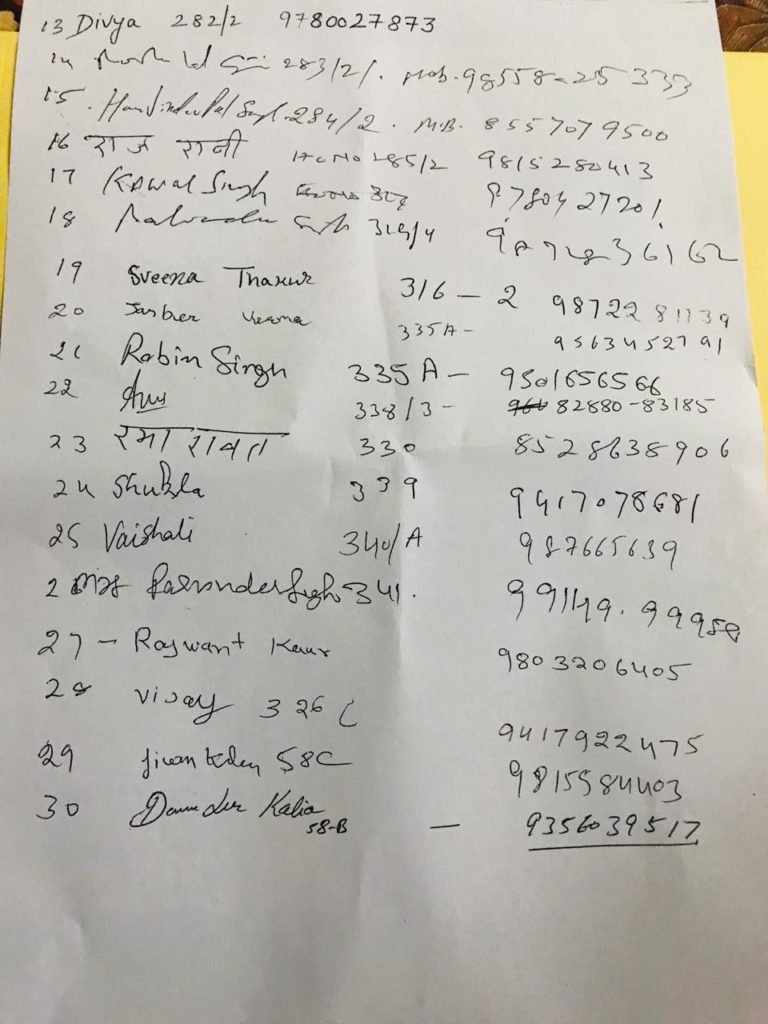 13 Divya 282/2 9780027873
14 283/2/. Mob. 98558-25333
15. Harvinder Pal Singh 284/2. M.B. 8557079500
16 राज रानी H.No 285/2 9815280413
17 Kawal Singh 9780427201
18 Singh
19 Sveena Thakur 316 - 2 98722 81139
20 Jasbeer Verma 335A- 9563452791
21 Robin Singh 335 A - 9501656566
22 Anu 338/3 - 82880-83185
23 रमा रावत 330 8528638906
24 Shukla 339 9417078681
25 Vaishali 340/A 987665639
2 Parvinder Singh 341. 99149.99958
27 - Rajwant Kaur 9803206405
28 Vijay 326 C 9417922475
29 58C 9815584403
30 Damoder Kalia 58-B - 9356039517